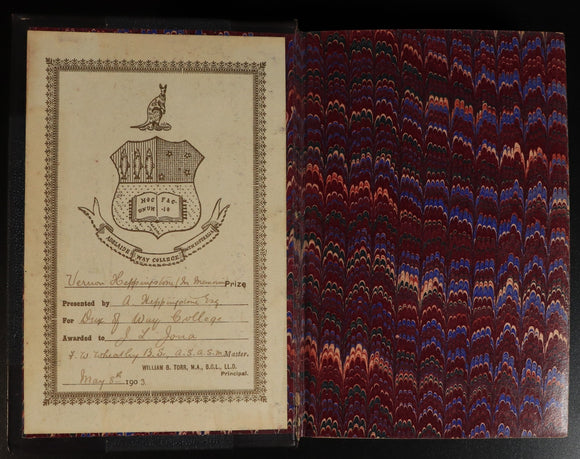 HOC FAC
UNUM -IS
ADELAIDE WAY COLLEGE SOUTH AUSTRALIA
Vernon Heppingstone (In Memoriam) Prize
Presented by A. Heppingstone Esq
For Dux of Way College
Awarded to J L Jona
F. W. Wheatley B.Sc. A.S.A.S.M. Master.
WILLIAM G. TORR, M.A., B.C.L., LL.D.
Principal.
May 8th 1903.